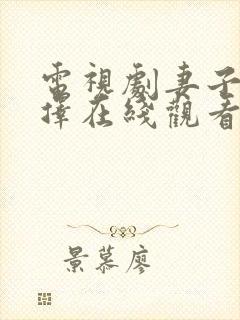 電視劇妻子
擇在綫觀看
景慕廖